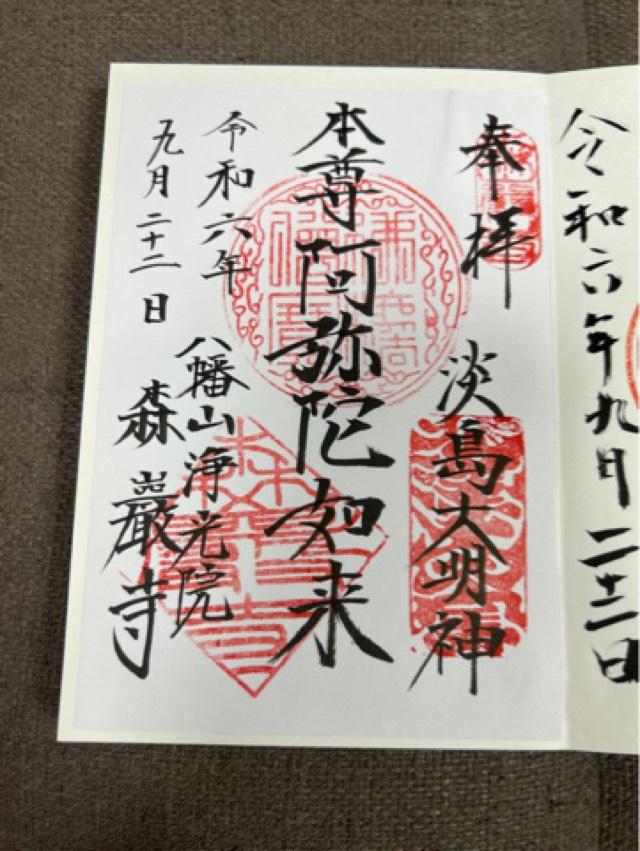 令和六年九月二十二日
奉拝
淡島大明神
本尊阿弥陀如来
令和六年
九月二十二日
八幡山浄光院
森巖寺